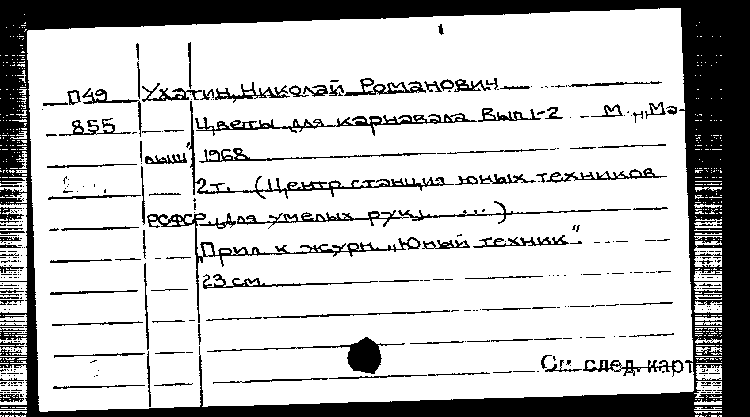 П49 Ухатин, Николай Романович
855 Цветы для карнавала Вып 1-2 М. „Ма-
лыш" 1968
2т. (Центр станция юных техников
РСФСР. Для умелых рук. ...)
Прил к журн. „Юный техник".
23 см.
См. след. карт